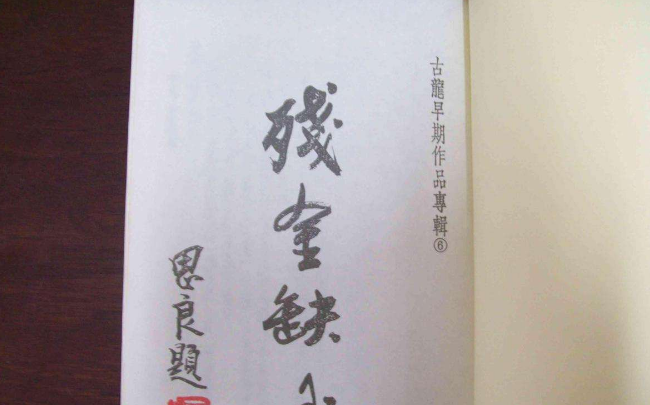 古龍早期作品專輯⑥
殘金缺
恩良題